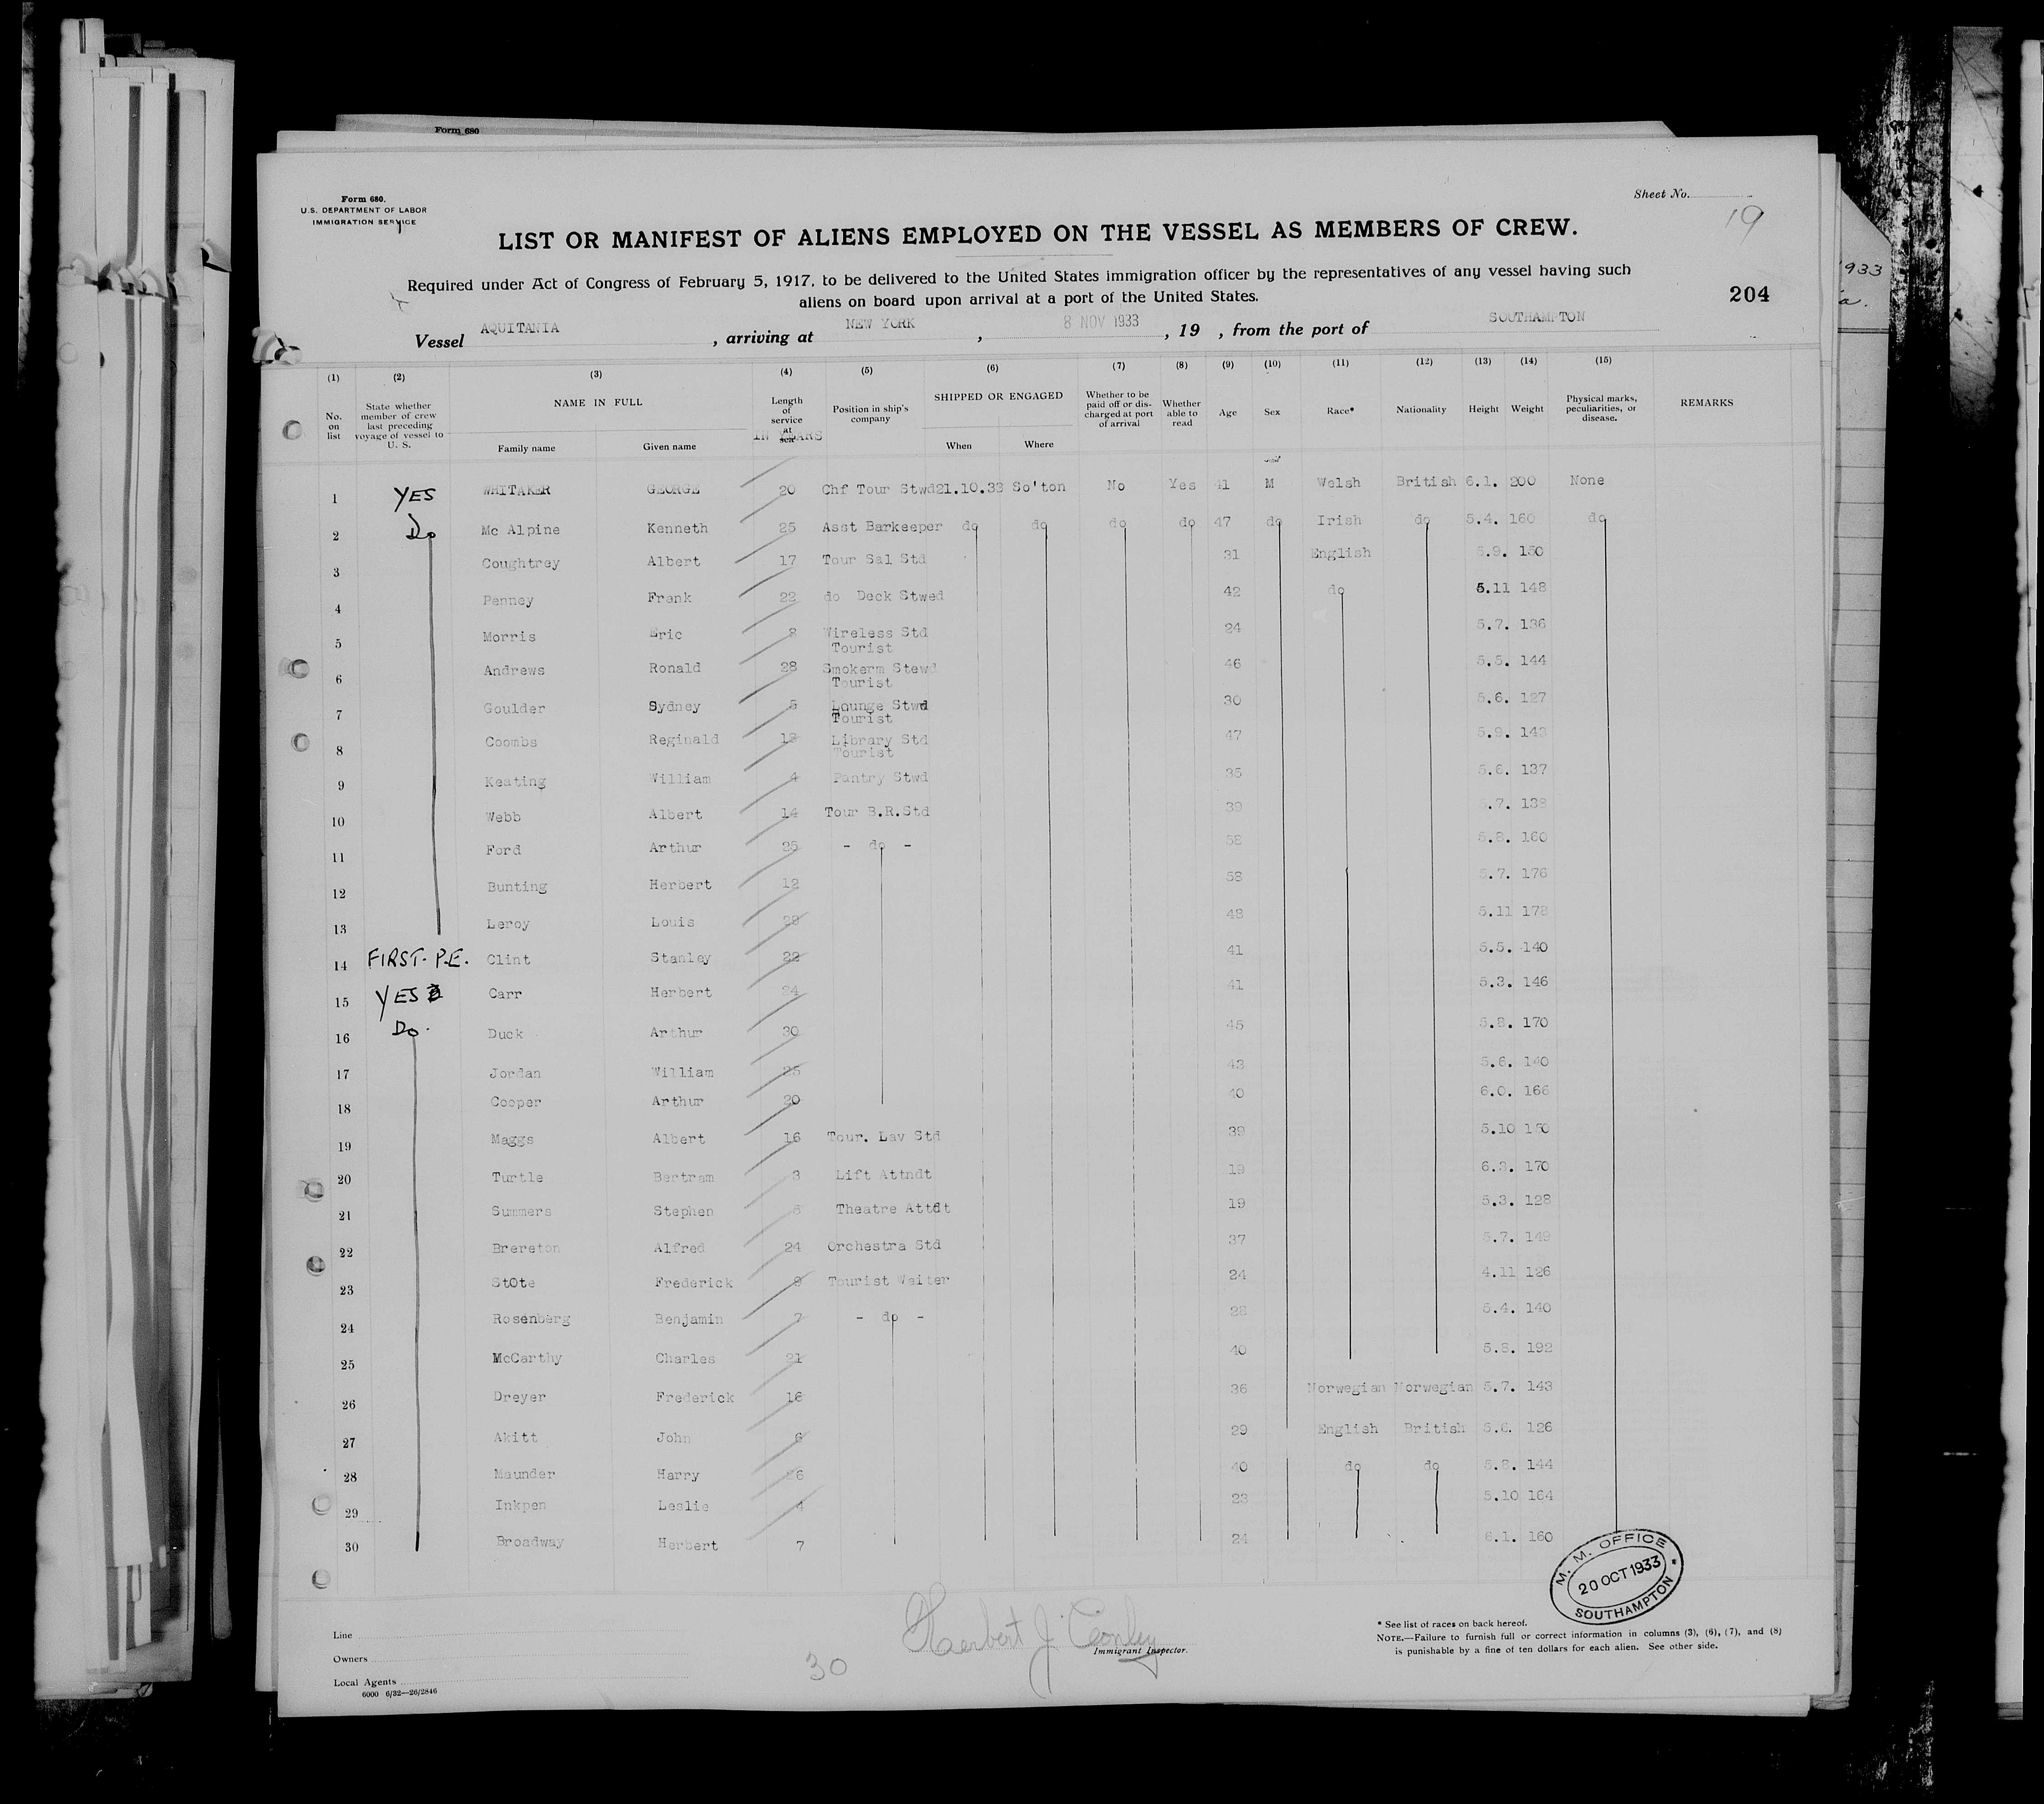 Form 680
Form 680.
U.S. DEPARTMENT OF LABOR
IMMIGRATION SERVICE
Sheet No.
19
LIST OR MANIFEST OF ALIENS EMPLOYED ON THE VESSEL AS MEMBERS OF CREW.
Required under Act of Congress of February 5, 1917, to be delivered to the United States immigration officer by the representatives of any vessel having such
aliens on board upon arrival at a port of the United States.
204
Vessel AQUITANIA , arriving at NEW YORK , 8 NOV 1933 , 19 , from the port of SOUTHAMPTON
(1) (2) (3) (4) (5) (6) (7) (8) (9) (10) (11) (12) (13) (14) (15)
No. on list State whether member of crew last preceding voyage of vessel to U. S. NAME IN FULL Family name Given name Length of service at sea IN YEARS Position in ship's company SHIPPED OR ENGAGED When Where Whether to be paid off or discharged at port of arrival Whether able to read Age Sex Race* Nationality Height Weight Physical marks, peculiarities, or disease. REMARKS
1 YES WHITAKER GEORGE 20 Chf Tour Stwd 21.10.33 So'ton No Yes 41 M Welsh British 6.1. 200 None
2 Do Mc Alpine Kenneth 25 Asst Barkeeper do do do do 47 do Irish do 5.4. 160 do
3 Coughtrey Albert 17 Tour Sal Std 31 English 5.9. 150
4 Penney Frank 22 do Deck Stwed 42 do 5.11 148
5 Morris Eric 8 Wireless Std 24 5.7. 136
Tourist
6 Andrews Ronald 28 Smokerm Stewd 46 5.5. 144
Tourist
7 Goulder Sydney 5 Lounge Stwd 30 5.6. 127
Tourist
8 Coombs Reginald Library Std 47 5.9. 143
Tourist
9 Keating William 4 Pantry Stwd 35 5.6. 137
10 Webb Albert 14 Tour B.R.Std 39 5.7. 138
11 Ford Arthur 25 - do - 58 5.8. 160
12 Bunting Herbert 12 58 5.7. 176
13 Leroy Louis 48 5.11 178
14 FIRST. P.E. Clint Stanley 22 41 5.5. 140
15 YES Carr Herbert 24 41 5.3. 146
16 Do. Duck Arthur 30 45 5.8. 170
17 Jordan William 25 43 5.6. 140
18 Cooper Arthur 20 40 6.0. 166
19 Maggs Albert 16 Tour. Lav Std 39 5.10
20 Turtle Bertram 3 Lift Attndt 19 170
21 Summers Stephen 5 Theatre Attdt 19 5.3. 128
22 Brereton Alfred 24 Orchestra Std 37 5.7. 149
23 StOte Frederick 9 Tourist Waiter 24 4.11 126
24 Rosenberg Benjamin 7 - do - 28 5.4. 140
25 McCarthy Charles 21 40 5.8. 192
26 Dreyer Frederick 16 36 Norwegian Norwegian 5.7. 143
27 Akitt John 6 29 English British 5.6. 126
28 Maunder Harry 26 40 do do 5.8. 144
29 Inkpen Leslie 4 23 5.10 164
30 Broadway Herbert 7 24 6.1. 160
M. M. OFFICE
20 OCT 1933
SOUTHAMPTON
Line
Owners
Local Agents
6000 6/32—26/2846
30
Herbert J. Conley
Immigrant Inspector.
* See list of races on back hereof.
NOTE.—Failure to furnish full or correct information in columns (3), (6), (7), and (8)
is punishable by a fine of ten dollars for each alien. See other side.
1933
a.